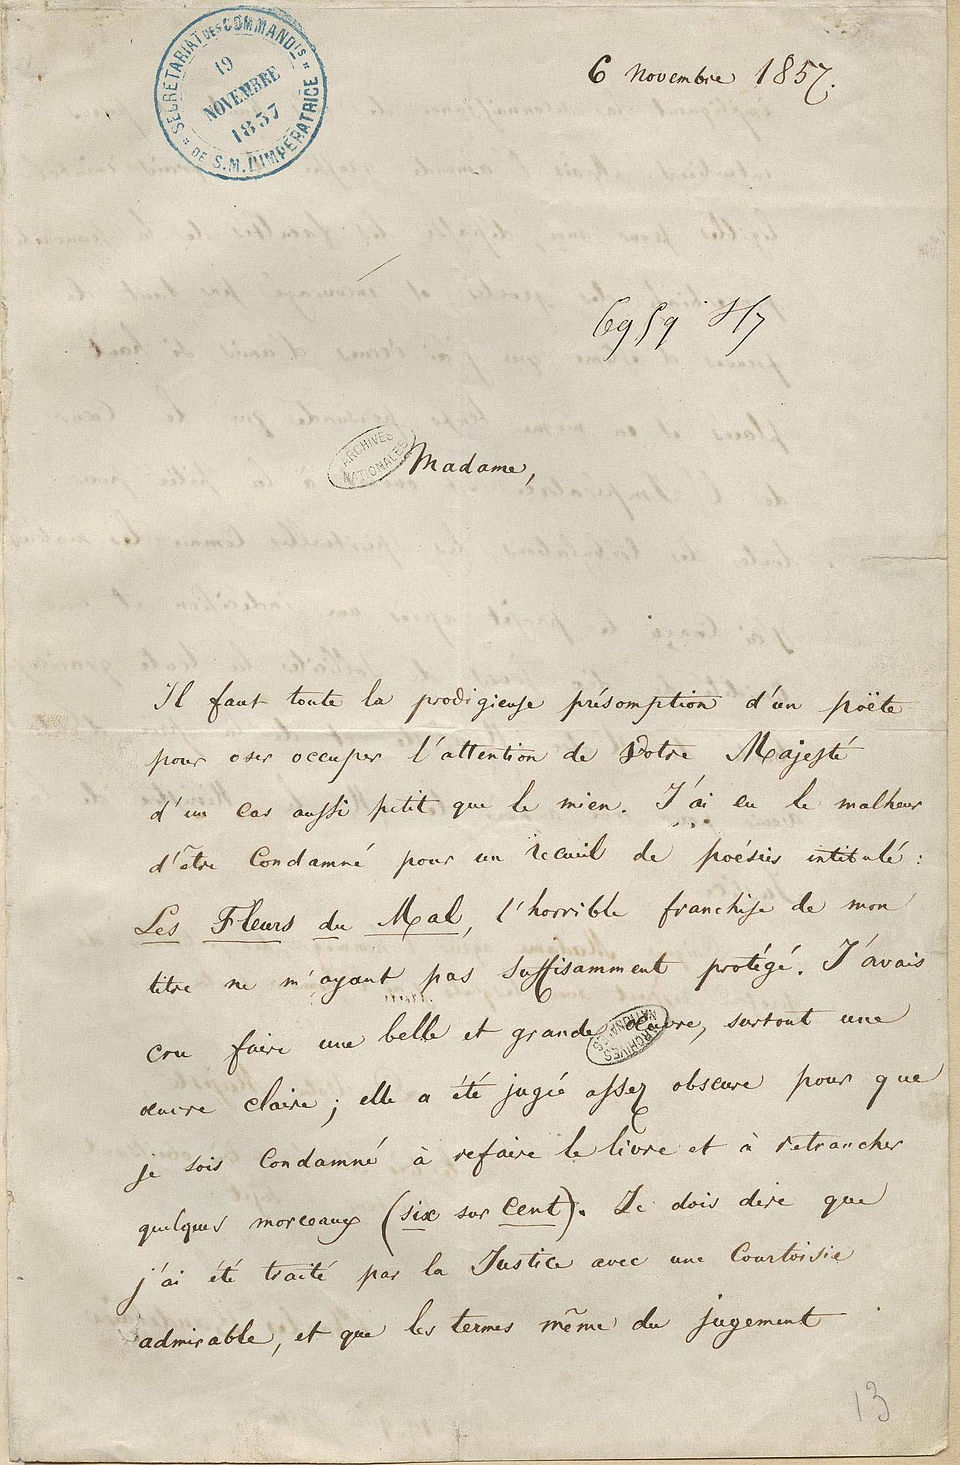 SECRÉTARIAT DES COMMAND.TS
19
NOVEMBRE
1857
DE S.M. L'IMPÉRATRICE
6 Novembre 1857.
6959
ARCHIVES
NATIONALES
Madame,
Il faut toute la prodigieuse présomption d'un poëte
pour oser occuper l'attention de Votre Majesté
d'un cas aussi petit que le mien. J'ai eu le malheur
d'être condamné pour un recueil de poésies intitulé :
Les Fleurs du Mal, l'horrible franchise de mon
titre ne m'ayant pas suffisamment protégé. J'avais
cru faire une belle et grande œuvre, surtout une
ARCHIVES
NATIONALES
œuvre claire ; elle a été jugée assez obscure pour que
je sois condamné à refaire le livre et à retrancher
quelques morceaux (six sur cent). Je dois dire que
j'ai été traité par la Justice avec une courtoisie
admirable, et que les termes même du jugement
13